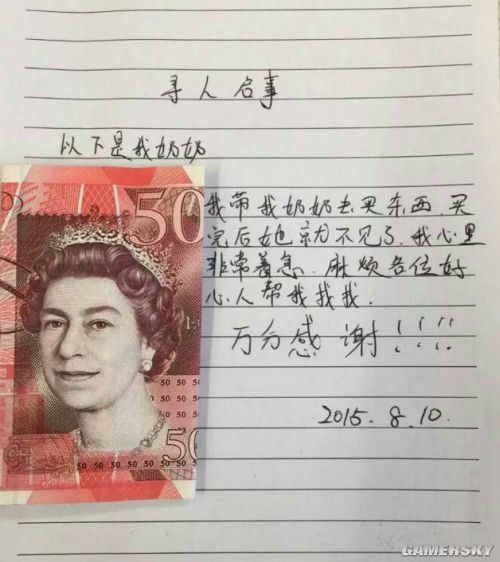 寻人启事
以下是我奶奶
我带我奶奶去买东西.买
完后她就不见了.我心里
非常着急.麻烦各位好
心人帮我找找.
万分感谢!!!!
2015.8.10.
50
50 50 50
50
GAMERSKY